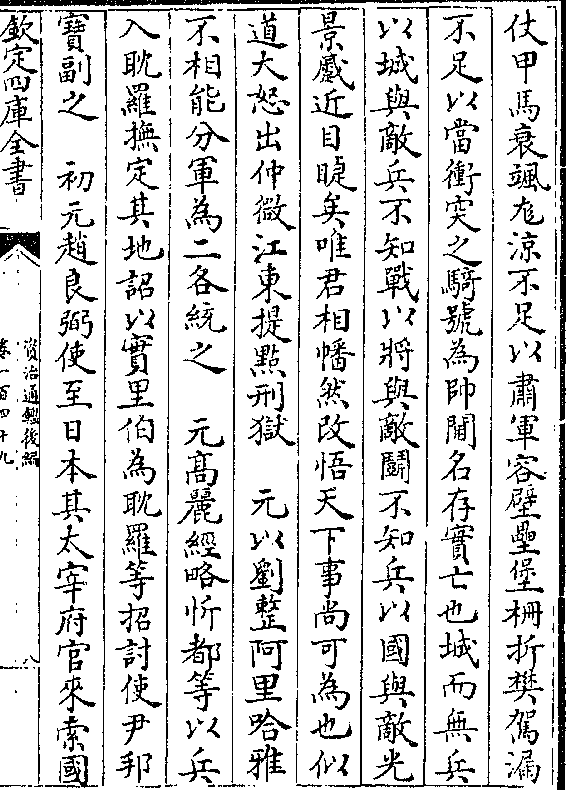 仗甲馬衰颯尨涼不足以肅軍容壁壘堡柵折樊駕漏
不足以當衝突之騎號為帥閫名存實亡也城而無兵
以城與敵兵不知戰以將與敵鬭不知兵以國與敵光
景蹙近目睫矣唯君相幡然改悟天下事尚可為也似
道大怒出仲微江東提點刑獄　元以劉整阿里哈雅
不相能分軍為二各統之　元高麗經略忻都等以兵
入耽羅撫定其地詔以實里伯為耽羅等招討使尹邦
寶副之　初元趙良弼使至日本其太宰府官來索國
欽定四庫全書
資治通鑑後編
卷一百四十九
八